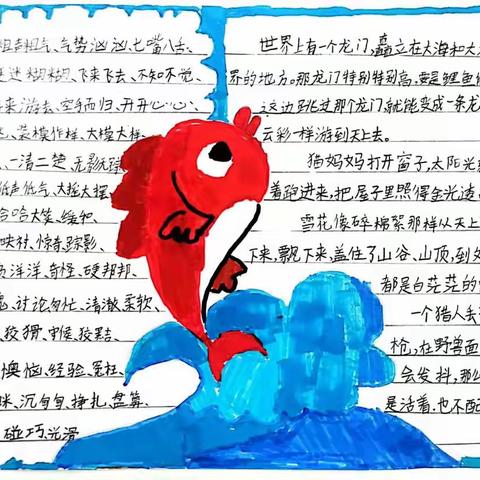 粗声粗气、气势汹汹、七嘴八舌、
迷迷糊糊、飞去、不知不觉、
来游去、空手而归、开开心心、
装模作样、大模大样、
一清二楚、无影无踪
低声低气、大摇大摆
哈哈大笑、继续
惊奇、踪影、
洋洋、奇怪、硬邦邦、
讨论、匆忙、清澈、柔软
狡猾、
懊恼、经验、冤枉、
沉甸甸、挣扎、盘算、
碰巧、光滑
世界上有一个龙门,矗立在大海和大
界的地方。那龙门特别特别高,要是鲤鱼
这边跳过那个龙门,就能变成一条龙
云彩一样游到天上去。
猫妈妈打开窗子,太阳光
着跑进来,把屋子里照得金光
雪花像碎棉絮那样从天上
下来,飘下来,盖住了山谷、山顶,到处
都是白茫茫的
一个猎人
枪,在野兽面
会发抖,那
是活着,也不配